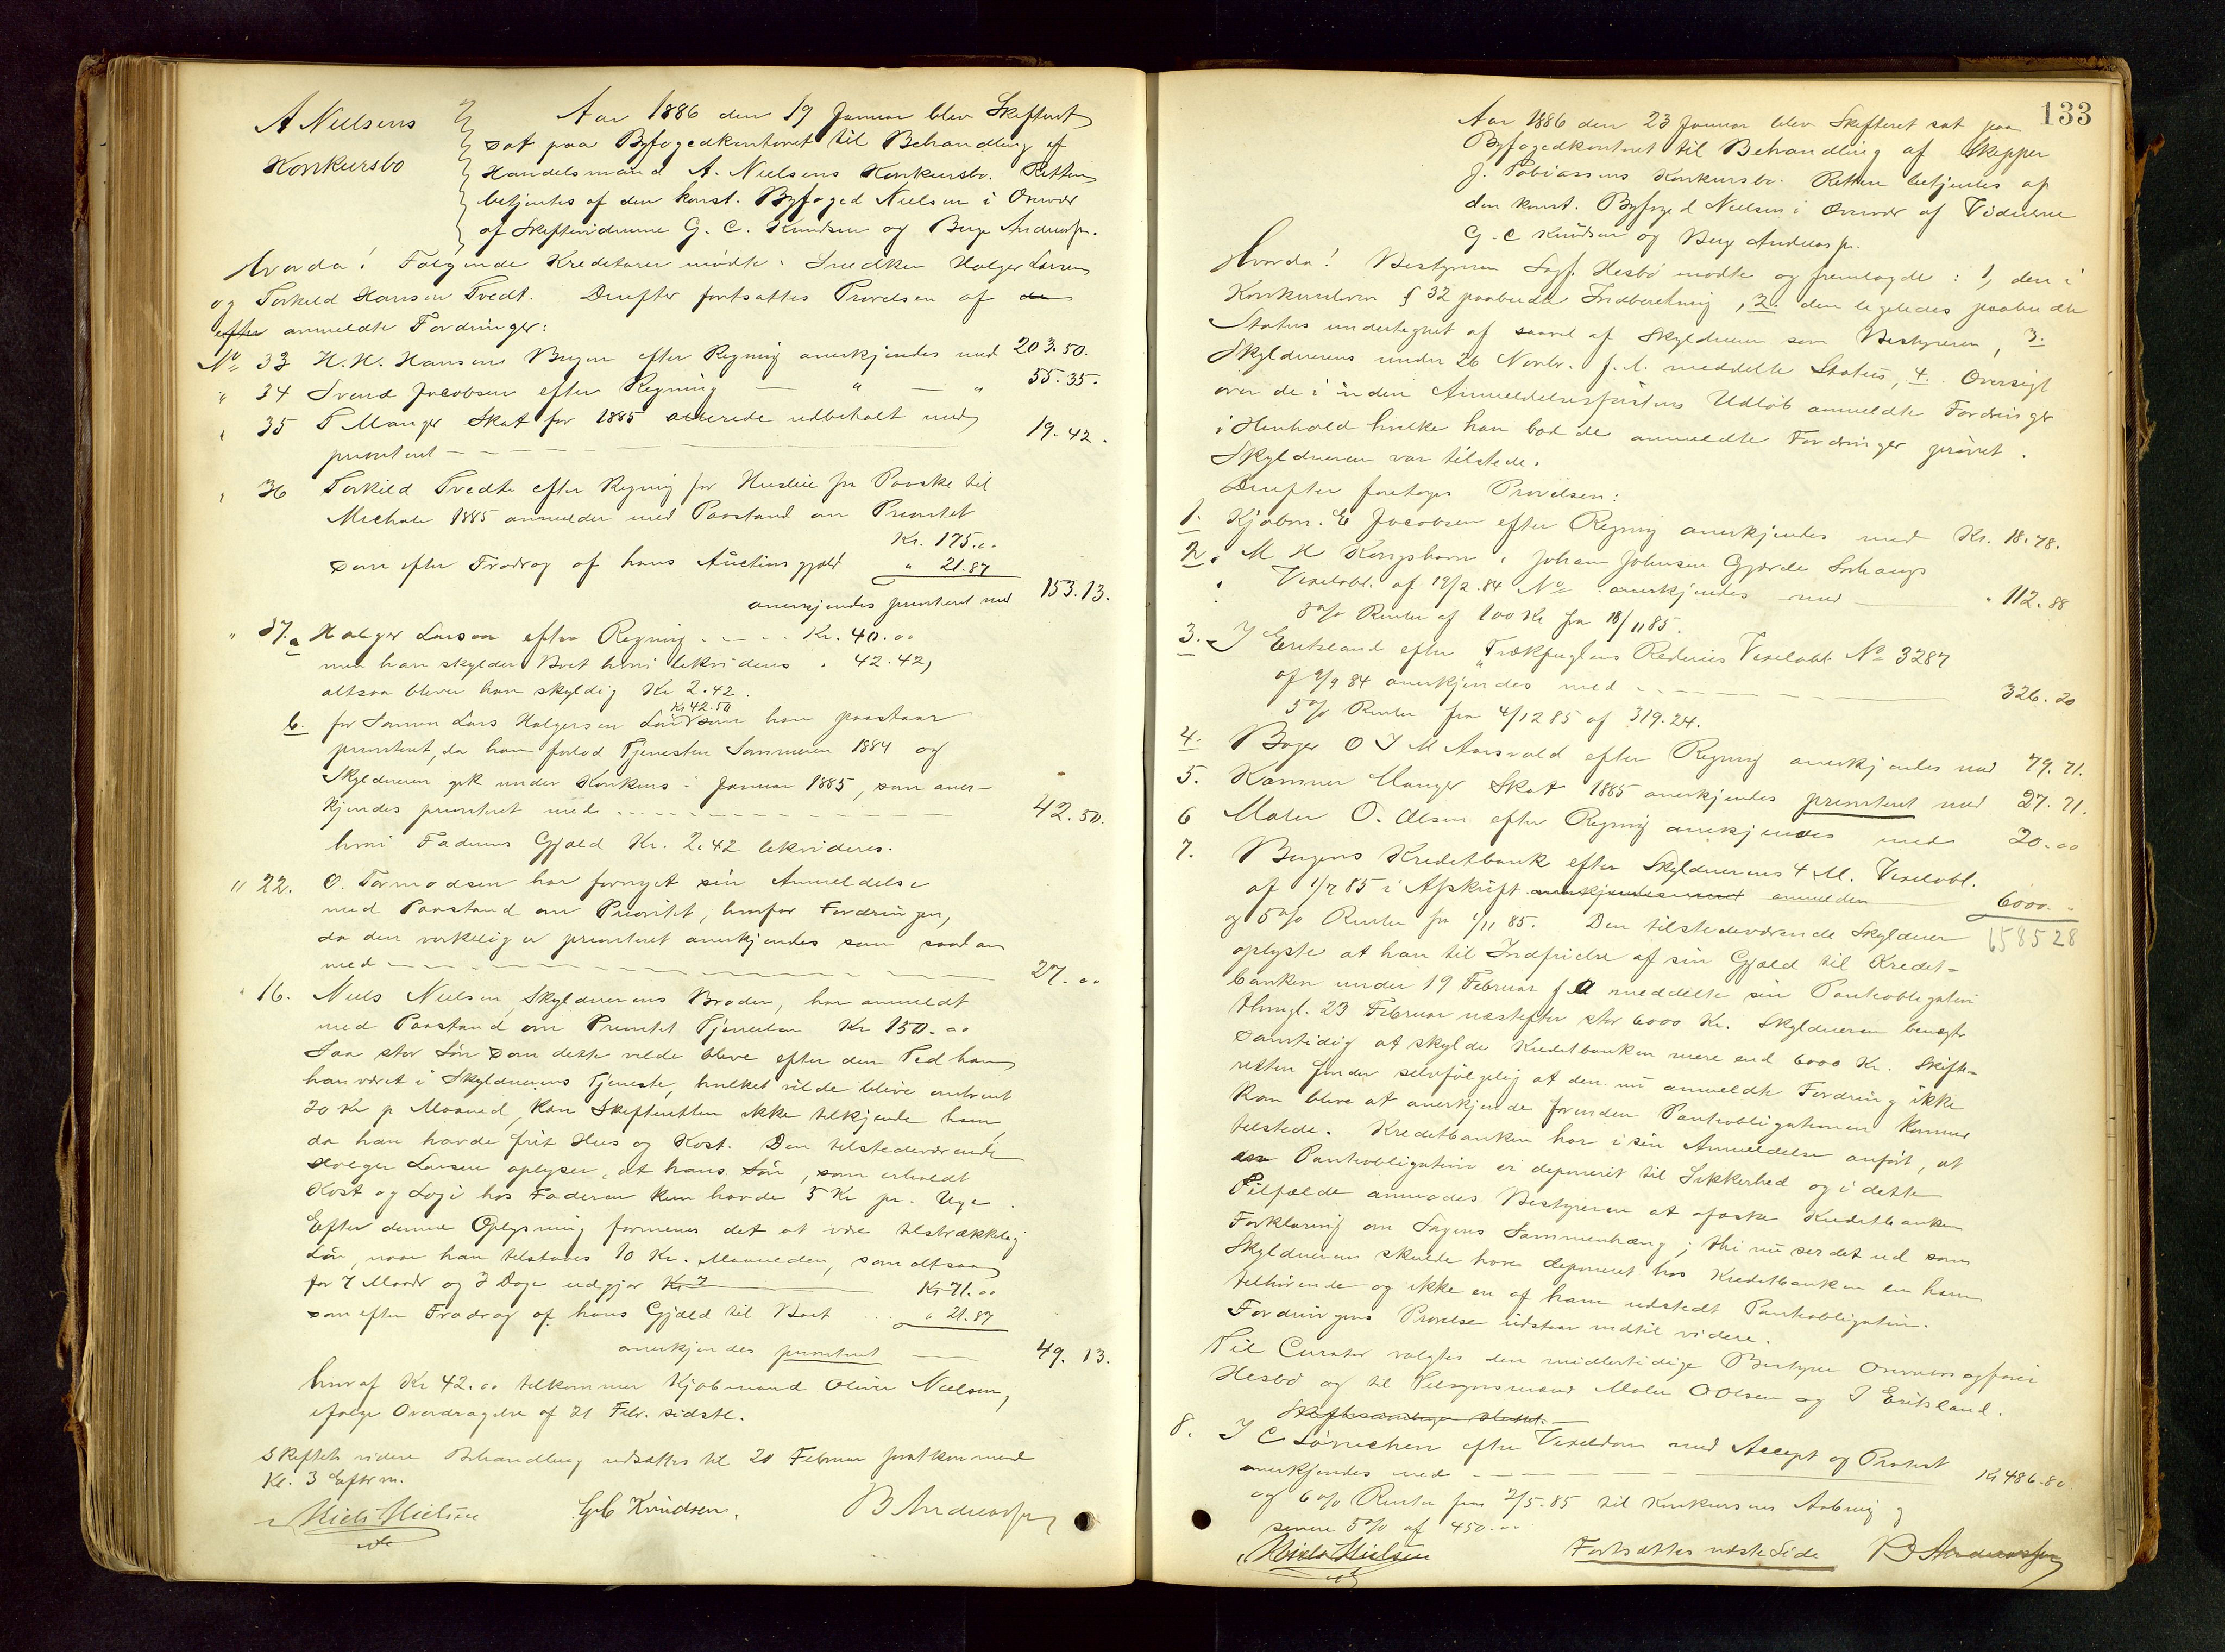 A Nielsens
Konkursbo
Aar 1886 den 19 Januar blev Skifteret
sat paa Byfogedkontoret til Behandling af
Handelsmand A. Nielsens Konkursbo. Retten
betjentes af den konst. Byfoged Nielsen i Overvær
af Skiftevidnerne G. C. Knudsen og Berge Andersen.
Hvorda! Følgende Kreditorer mødte: Snedker Holger Larsen
og Torkild Hansen Tvedt. Derefter fortsattes Prøvelsen af de
efter anmeldte Fordringer:
No 33 H. H. Hansen Bergen efter Regning anerkjendes med 203.50.
" 34 Svend Jacobsen efter Regning — " — " 55.35.
" 35 T Manger Skat for 1885 allerede udbetalt med
prioriteret — 19.42.
" 36 Torkild Tvedte efter Regning for Husleie fra Paaske til
Michaeli 1885 anmeldes med Paastand om Prioritet
Kr. 175.00
som efter Fradrag af hans Auctionsgjæld " 21.87
anerkjendes prioriteret med 153.13.
" 37. a Holger Larsen efter Regning . . . Kr. 40.00
men han skylder Boet hvori likvideres " 42.42,
altsaa bliver han skyldig Kr 2.42.
Kr 42.50
b. for Sønnen Lars Holgersen Løn som han paastaar
prioriteret, da han forlod Tjenesten Sommeren 1884 og
Skyldneren gik under Konkurs i Januar 1885, som aner-
kjendes prioriteret med . . . 42.50.
hvori Faderens Gjæld Kr. 2.42 likvideres.
" 22. O. Tormodsen har fornyet sin Anmeldelse
med Paastand om Prioritet, hvorfor Fordringen,
da den virkelig er prioriteret anerkjendes som saadan
med — 27.00
" 16. Niels Nielsen, Skyldnerens Broder, har anmeldt
med Paastand om Prioritet Tjenerløn Kr 150.00
Saa stor Løn som dette vilde blive efter den Tid han
har været i Skyldnerens Tjeneste, hvilket vilde blive omtrent
20 Kr p Maaned, kan Skifteretten ikke tilkjende ham,
da han havde frit Hus og Kost. Den tilstedeværende
Holger Larsen oplyser, at hans Søn, som erholdt
Kost og Logi hos Faderen kun havde 5 Kr pr. Uge.
Efter denne Oplysning formenes det at være tilstrækkelig
Løn, naar han tilstaaes 10 Kr. Maaneden, som altsaa
for 7 Maandr og 3 Dage udgjør Kr 7 Kr 71.00
som efter Fradrag af hans Gjæld til Boet . . . " 21.87
anerkjendes prioriteret — 49.13.
hvoraf Kr 42.00 tilkommer Kjøbmand Oliver Nielsen,
ifølge Overdragelse af 21 Febr. sidstl.
Skiftets videre Behandling udsattes til 20 Februar førstkommend
Kl. 3 Efterm.
Niels Nielsen G C Knudsen. B Andersen
133
Aar 1886 den 23 Januar blev Skifteret sat paa
Byfogedkontoret til Behandling af Skipper
J. Tobiassens Konkursbo. Retten betjentes af
den konst. Byfoged Nielsen i Overvær af Vidnerne
G. C Knudsen og Berg Andersen.
Hvorda! Bestyreren Sagf. Hesbø mødte og fremlagde: 1, den i
Konkursloven § 32 paabudte Indberetning, 2. den ligeledes paabudte
Status undertegnet af saavel af Skyldneren som Bestyreren, 3.
Skyldnerens under 26 Novbr. f. A. meddelte Status, 4. Oversigt
over de i inden Anmeldelsesfristens Udløb anmeldte Fordringer
i Henhold hvilke han bad de anmeldte Fordringer prøvet.
Skyldneren var tilstede.
Derefter foretoges Prøvelsen:
1. Kjøbm. E Jacobsen efter Regning anerkjendes med Kr. 18.78.
2. M H Kongshavn, Johan Johnsen Gjærde Sørhaugs
Vexelobl. af 12/2.84 No anerkjendes med — " 112.88
5% Renter af 100 Kr fra 18/11 85.
3. J Eritsland efter "Trækfuglens Rederies Vexelobl. No 3287
af 9/9 84 anerkjendes med — 326.20
5% Renter fra 4/12 85 af 319.24.
4. Bager O J M Aarsvold efter Regning anerkjendes med 79.71.
5. Kæmner Manger Skat 1885 anerkjendes prioriteret med 27.71.
6 Maler O. Olsen efter Regning anerkjendes med 20.00
7. Bergens Kreditbank efter Skyldnerens 4 M. Vexelobl.
af 1/7 85 i Afskrift anerkjendes med anmelden 6000. "
og 5% Renter fra 1/11 85. Den tilstedeværende Skyldner 6585 28
oplyste at han til Indfrielse af sin Gjæld til Kredit-
banken under 19 Februar f. A meddelte sin Panteobligation
thingl. 23 Februar næstefter stor 6000 Kr. Skyldneren benægte
samtidig at skylde Kreditbanken mere end 6000 Kr. Skifte-
retten finder selvfølgelig at den nu anmeldte Fordring ikke
kan blive at anerkjende forinden Panteobligationen kommer
tilstede. Kreditbanken har i sin Anmeldelse anført, at
den Panteobligation er deponeret til Sikkerhed og i dette
Tilfælde anmodes Bestyreren at afæske Kreditbanken
Forklaring om Sagens Sammenhæng; thi nu ser det ud som
Skyldneren skulde have deponeret hos Kreditbanken en ham
tilhørende og ikke en af ham udstedt Panteobligation.
Fordringens Prøvelse udstaar indtil videre.
Til Curator valgtes den midlertidige Bestyrer Overretssagfører
Hesbø og til Tilsynsmænd Maler O Olsen og J Eritsland.
Skiftesamlingen sluttet. —
8. J C Lönichen efter Vexeldom med Accept og Protest
anerkjendes med — Kr 486.80
og 6% Renter fra 2/5.85 til Konkursens Aabning og
senere 5% af 450.00
Niels Nielsen Fortsættes næste Side B Andersen